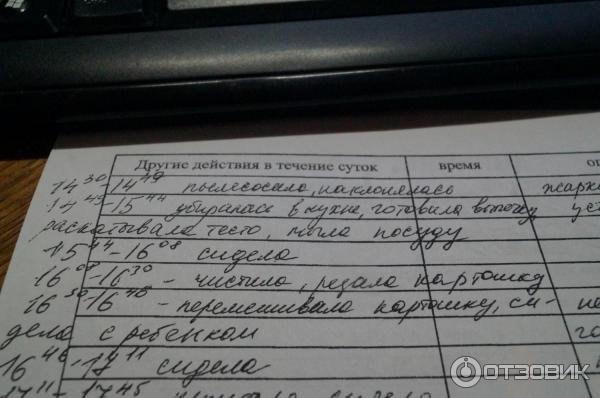 Другие действия в течение суток время оп
14 30 - 14 49 пылесосила, наклонялась жарко
14 49 - 15 44 убиралась в кухне, готовила выпечку, уст
раскатывала тесто, мыла посуду
15 44 - 16 08 сидела
16 08 - 16 30 - чистила, резала картошку
16 30 - 16 46 - перемешивала картошку, си-
дела с ребенком
16 46 - 17 11 сидела
17 11 - 17 45 сидела
ОТЗОВИК